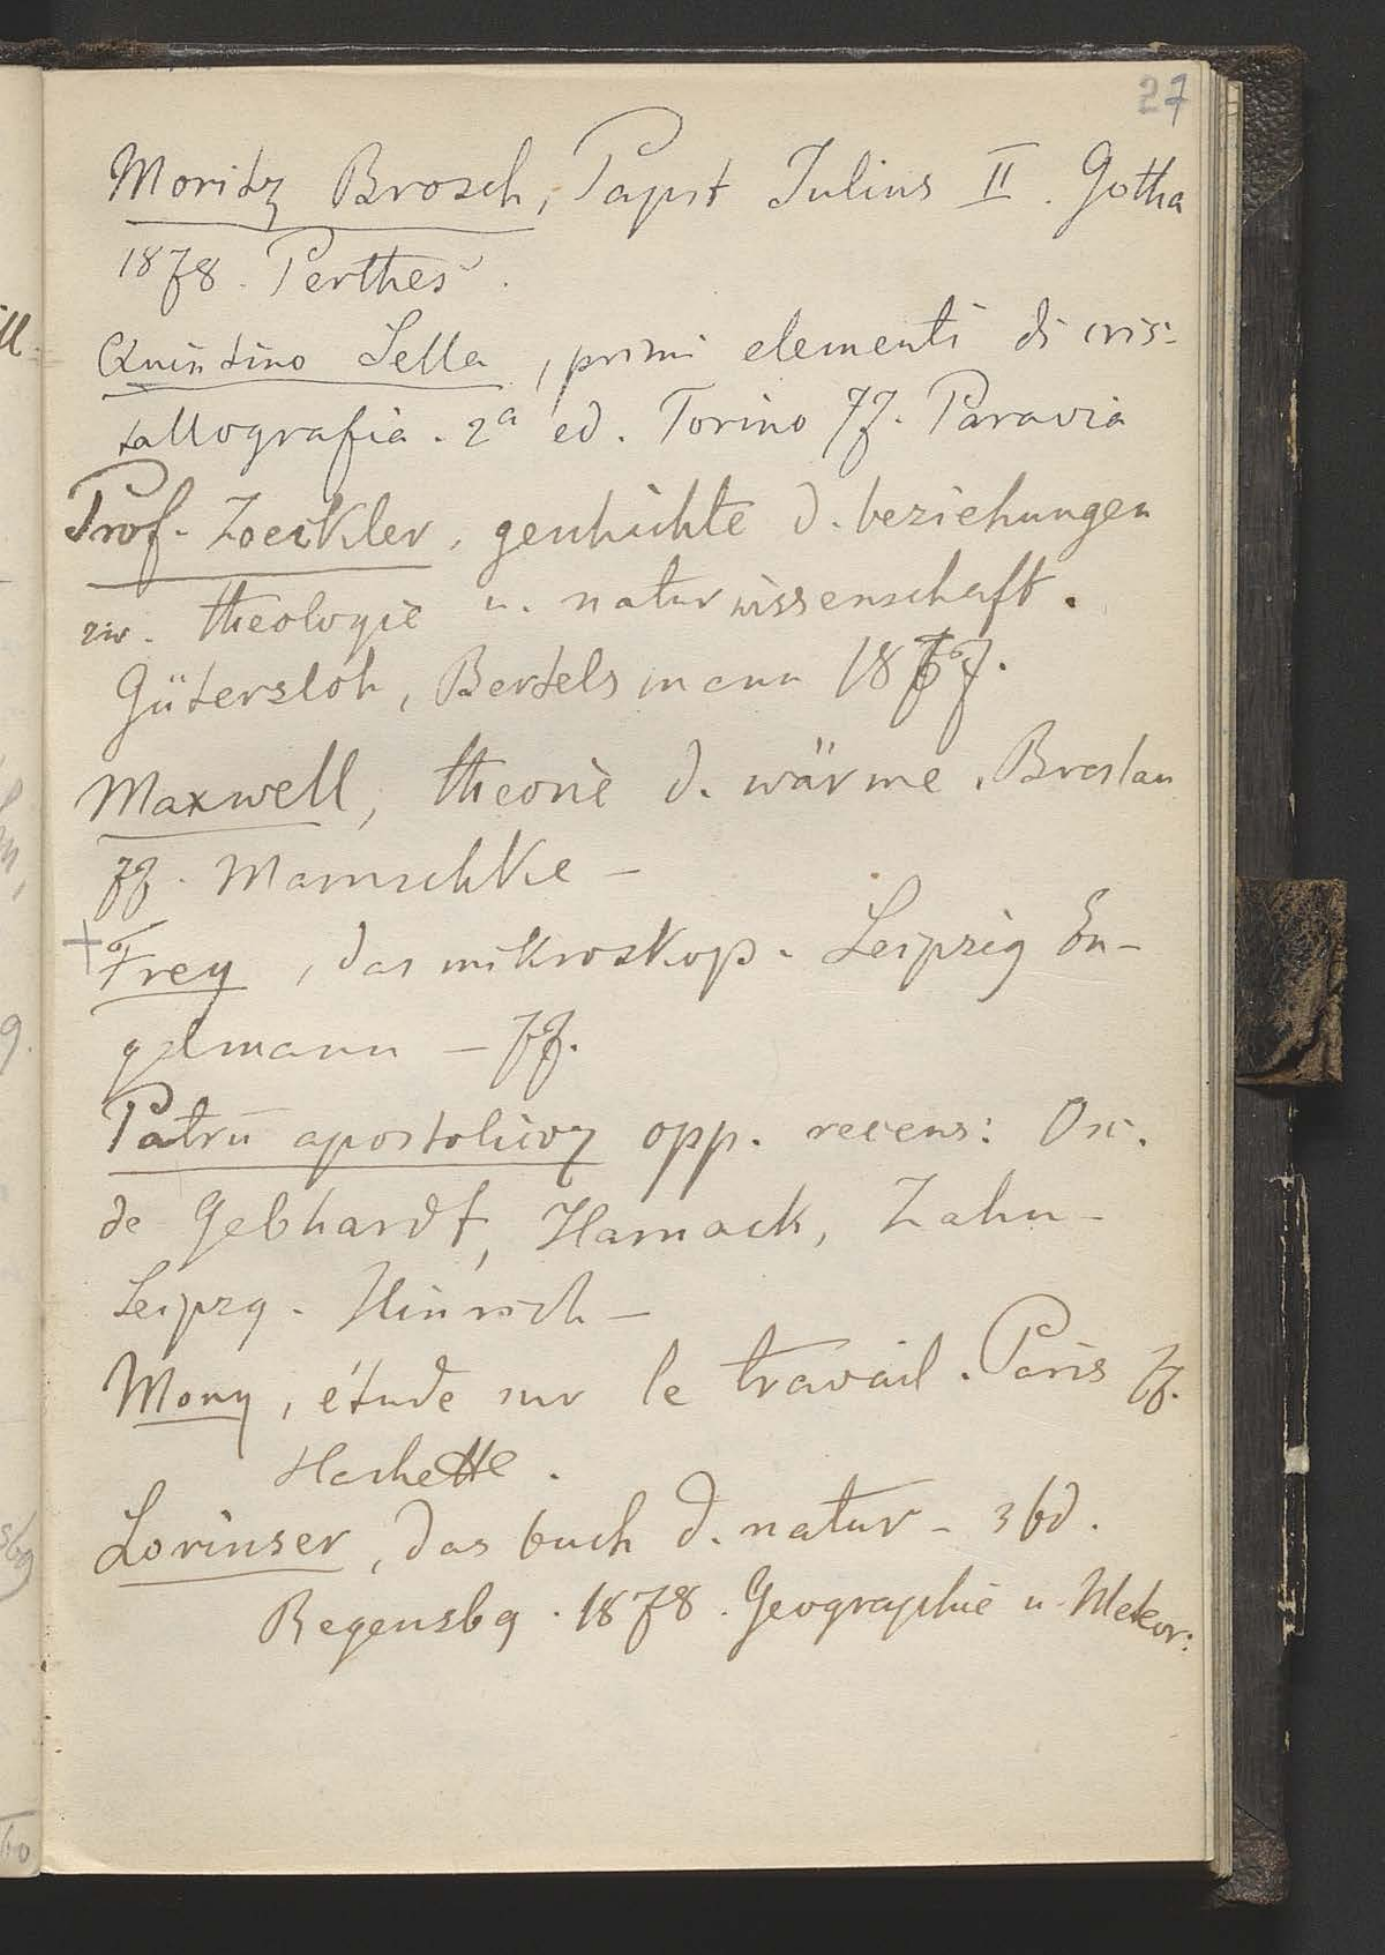 27
Moritz Brosch, Papst Julius II. Gotha
1878. Perthes.
Quintino Sella, primi elementi di cris-
tallografia. 2a ed. Torino 77. Paravia
Prof. Zoeckler, geschichte d. beziehungen
zw. theologie u. naturwissenschaft.
Gütersloh, Bertelsmann 1877.
Maxwell, theorie d. wärme. Breslau
77. Maruschke –
+ Frey, das mikroskop. Leipzig En-
gelmann – 77.
Patrū apostolicoꝝ opp. recens: Osc.
de Gebhardt, Harnack, Zahn –
Leipzg. Hinrich –
Mony, étude sur le travail. Paris 77.
Hachette.
Lorinser, das buch d. natur – 3 bd.
Regensbg. 1878. Geographie u. Meteor: